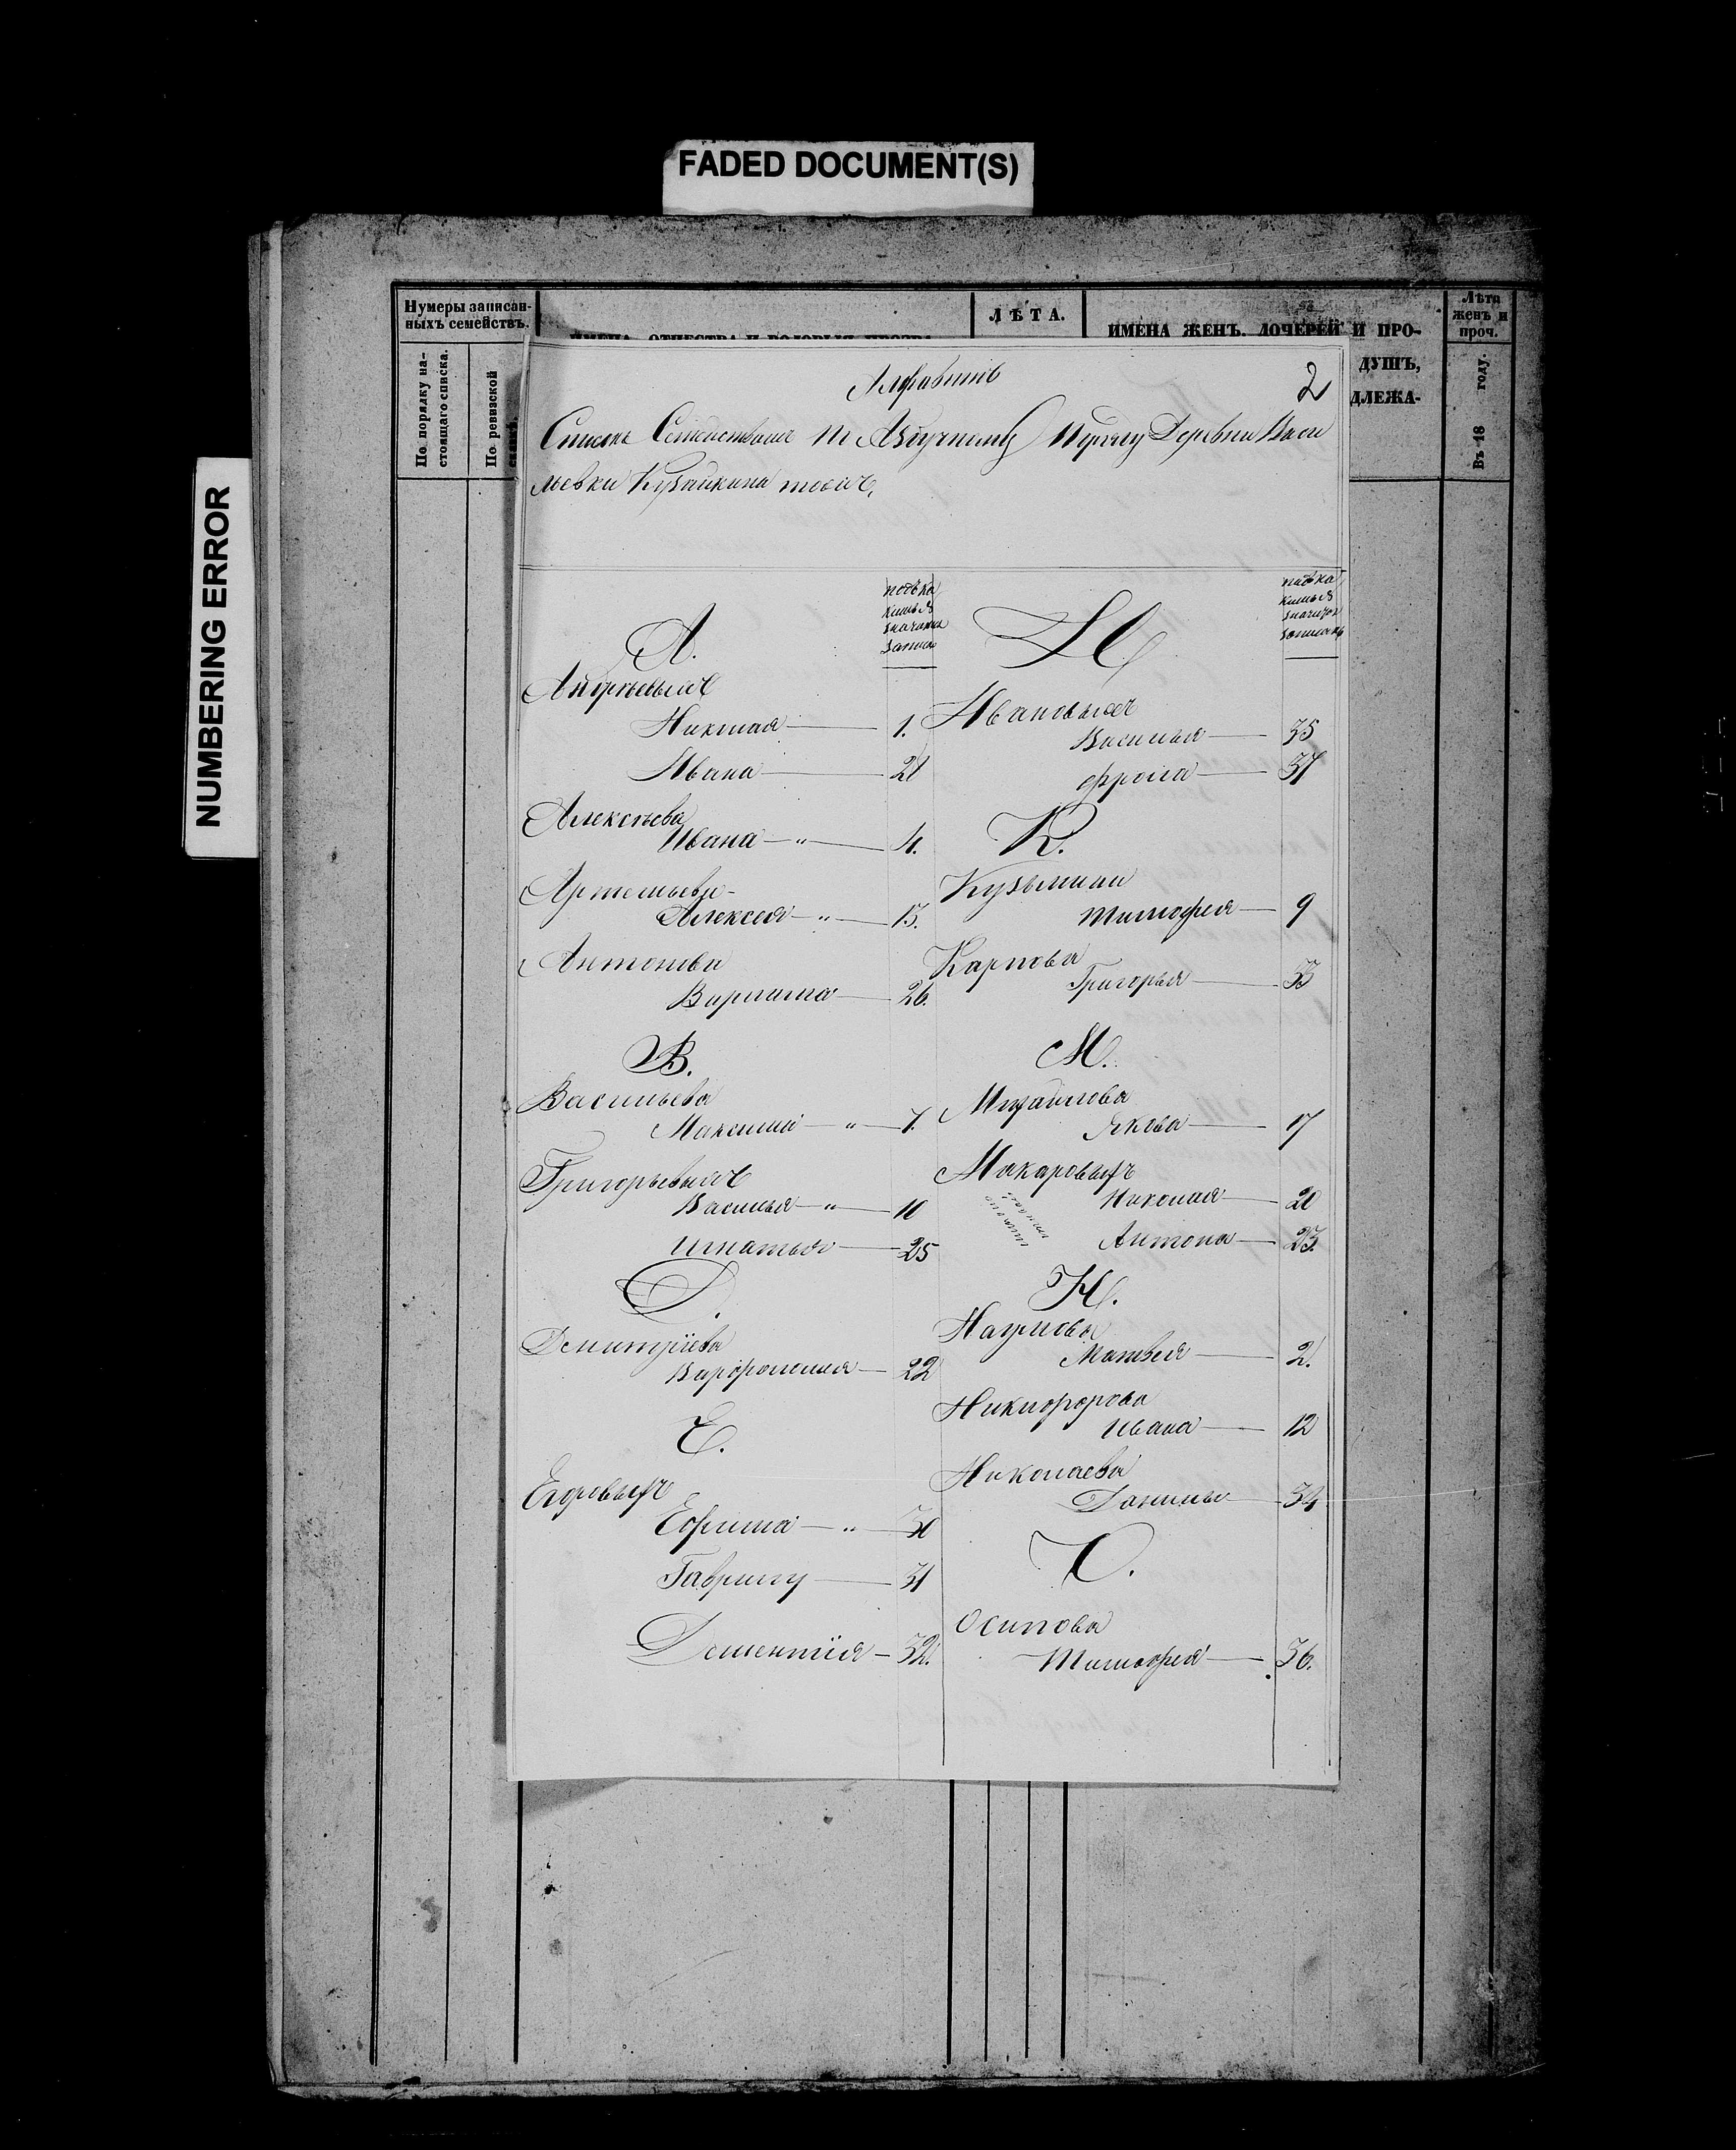 FADED DOCUMENT(S)
NUMBERING ERROR
Нумеры записан-
ныхъ семействъ.
По порядку на-
стоящаго списка.
По ревизской
ЛѢТА.
ИМЕНА ЖЕНЪ, ДОЧЕРЕЙ И ПРО-
ДУШЪ,
ДЛЕЖА-
Лѣта
женъ и
проч.
Въ 18 году.
Алфавитъ
2
Списокъ Семействамъ Деревни Васи
льевки Кузайкина тожъ,
А.
Андреевыхъ
Николая 1.
Ивана 21
Алексѣева
Ивана — „ — 4.
Артемьева
Алексея — „ — 15.
Антонова
Варлама 26.
В.
Васильева
Максима — „ — 7.
Григорьевыхъ
Василья — „ — 10
Игнатья 25
Д.
Дмитріева
Варфоломея 22
Е.
Егоровыхъ
Ефима — „ — 30
Гаврилу 31
Дементія 32.
И
Ивановыхъ
Василья 35
Фрола 37
К.
Кузьмина
Тимофея 9
Карпова
Григорья 33
М.
Михайлова
Якова 17
Макаровыхъ
Николая 20
Антона 23.
Н.
Наумова
Матвея 2.
Никифорова
Ивана 12
Николаева
Данилы 34
О.
Осипова
Тимофея 36.